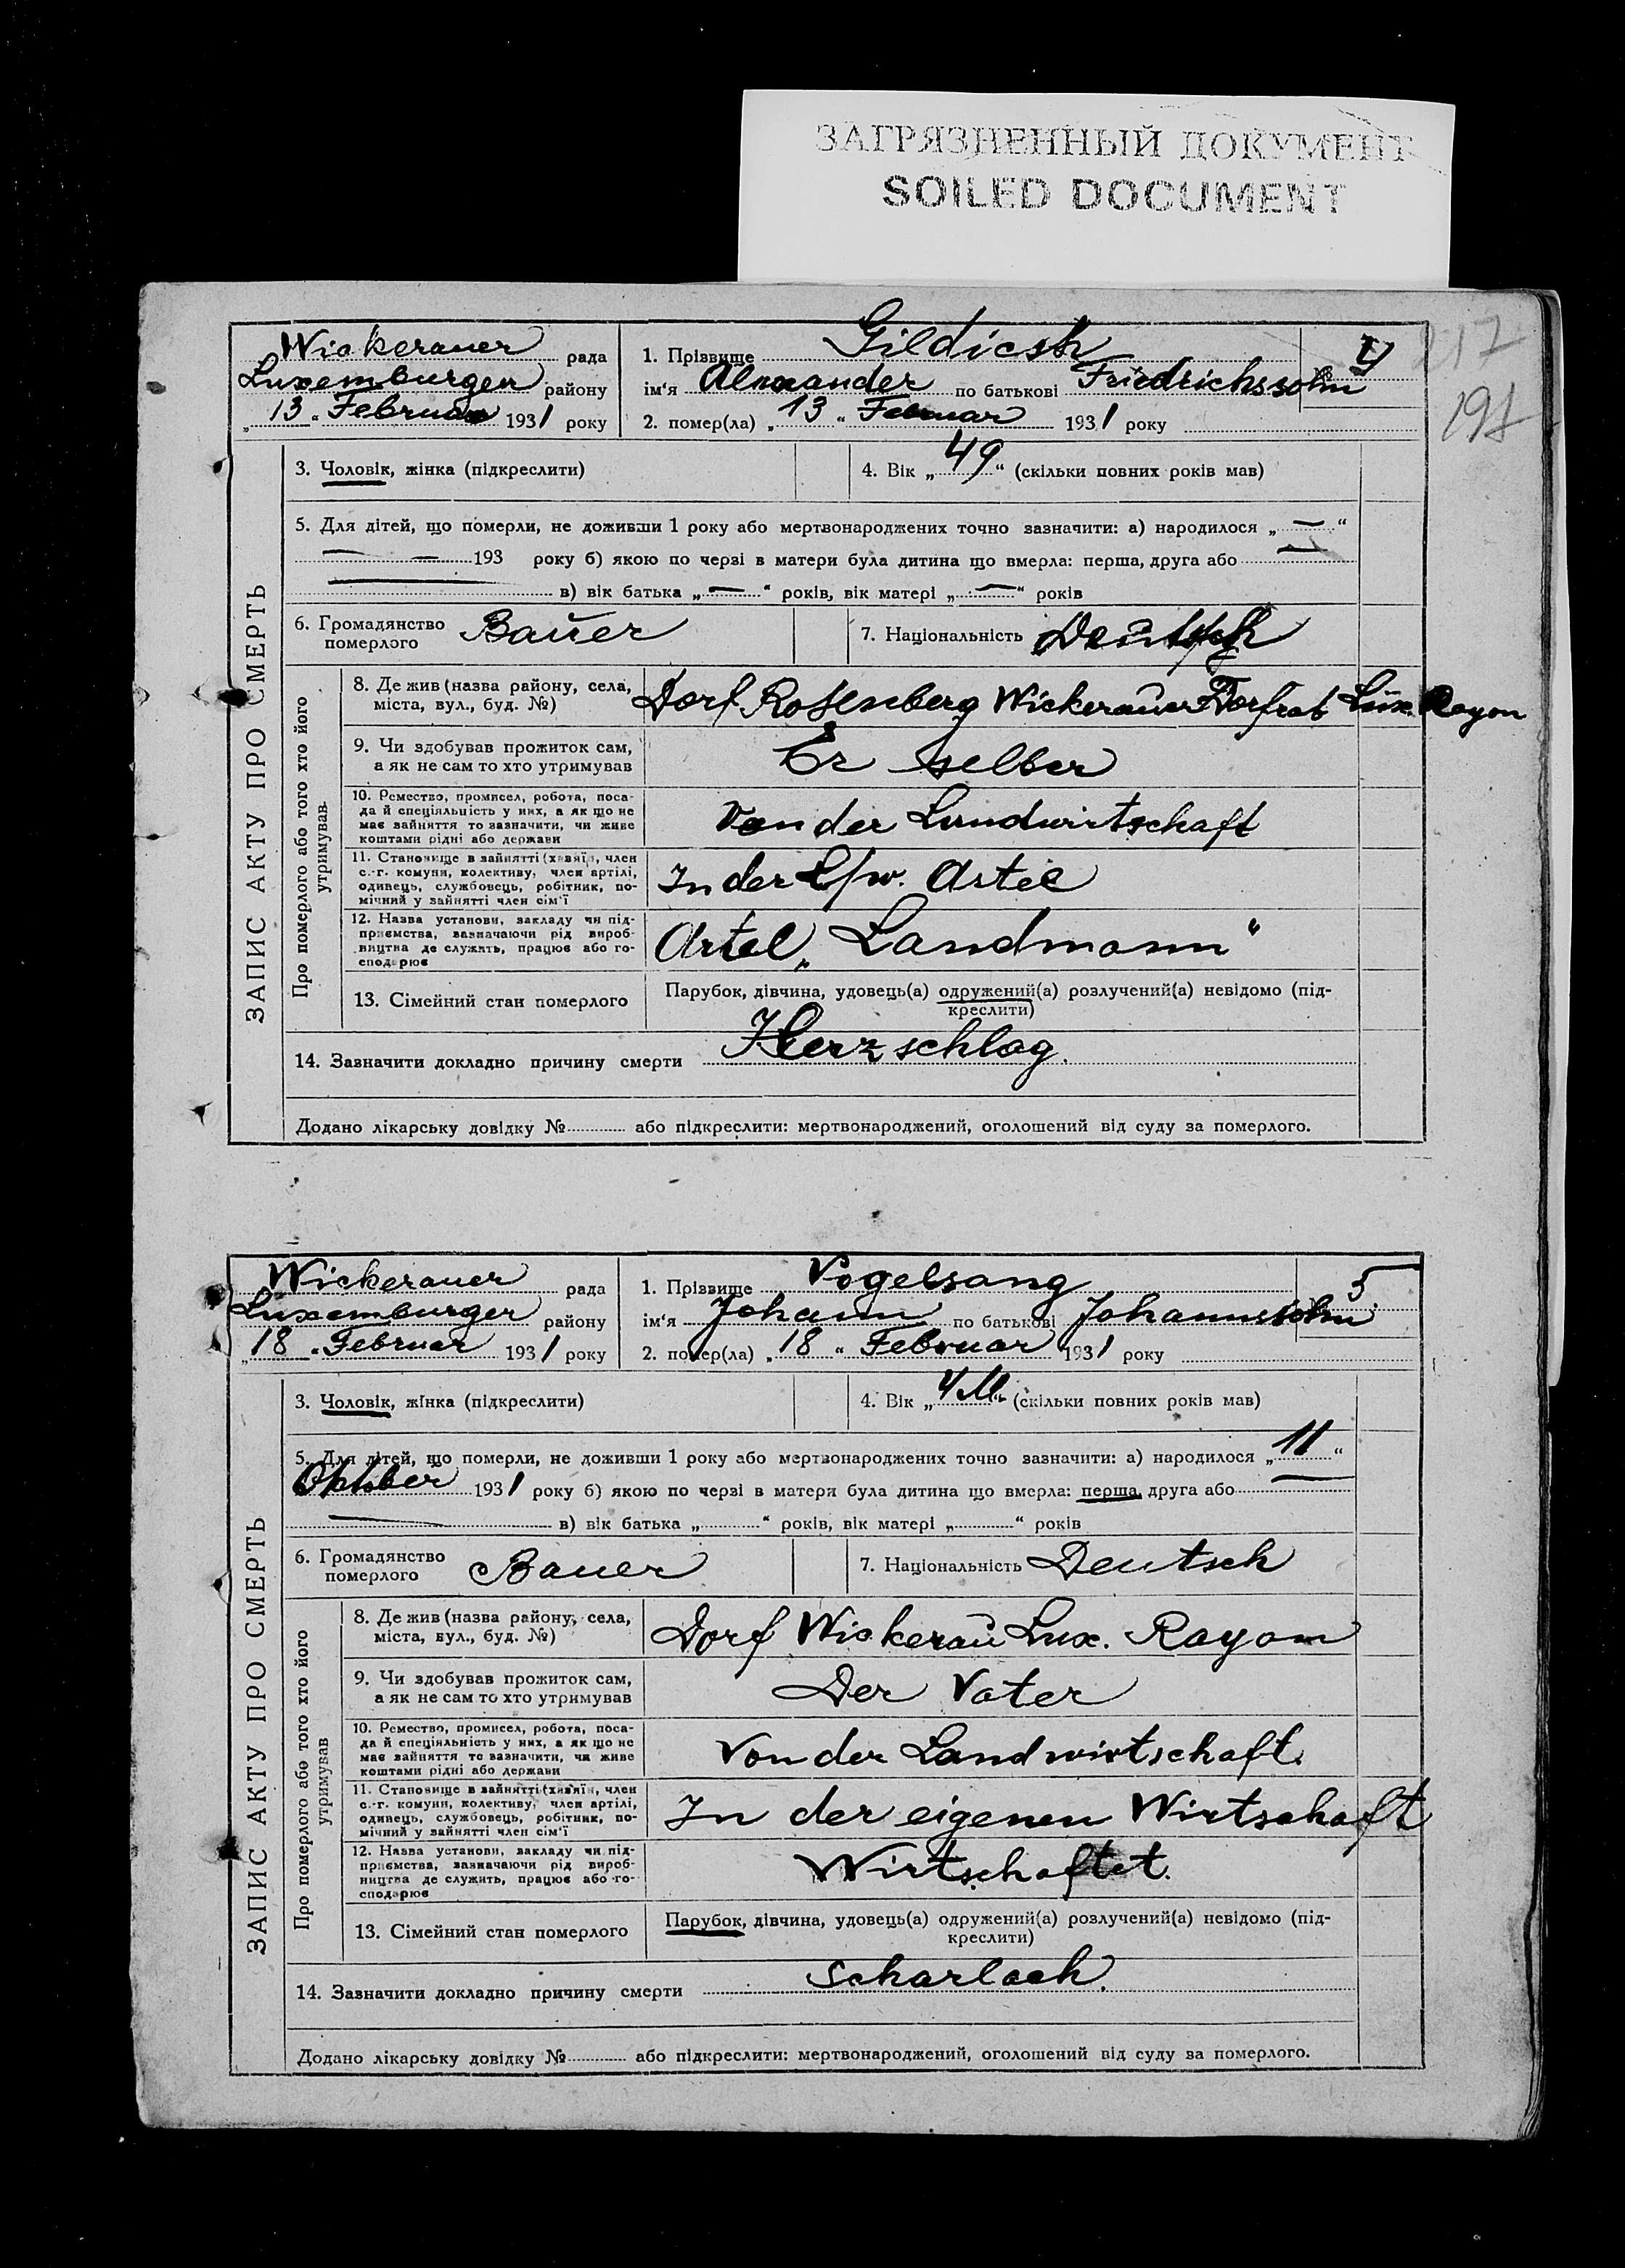 ЗАГРЯЗНЕННЫЙ ДОКУМЕНТ
SOILED DOCUMENT
217
191
ЗАПИС АКТУ ПРО СМЕРТЬ
Wickerauer рада
Luxemburger району
„13“ Februar 1931 року
1. Прізвище Gildicsh 4
ім‘я Alexander по батькові Friedrichssohn
2. помер(ла) „13“ Februar 1931 року
3. Чоловік, жінка (підкреслити)
4. Вік „49“ (скільки повних років мав)
5. Для дітей, що померли, не доживши 1 року або мертвонароджених точно зазначити: а) народилося „—“
— — 193 року б) якою по черзі в матери була дитина що вмерла: перша, друга або —
— в) вік батька „—“ років, вік матері „—“ років
6. Громадянство померлого Bauer
7. Національність Deutsch
Про померлого або того хто його утримував
8. Де жив (назва району, села, міста, вул., буд. №) Dorf Rosenberg Wickerauer Dorfrat Lux. Rayon
9. Чи здобував прожиток сам, а як не сам то хто утримував Er selber
10. Ремество, промисел, робота, посада й спеціяльність у них, а як що не має зайняття то зазначити, чи живе коштами рідні або держави Von der Landwirtschaft
11. Становище в зайнятті (хазяїн, член с.-г. комуни, колективу, член артілі, одинець, службовець, робітник, помічний у зайнятті член сім‘ї In der L/w. Artel
12. Назва установи, закладу чи підприємства, зазначаючи рід виробництва де служить, працює або господарює Artel „Landmann“
13. Сімейний стан померлого Парубок, дівчина, удовець(а) одружений(а) розлучений(а) невідомо (підкреслити)
14. Зазначити докладно причину смерти Herzschlag.
Додано лікарську довідку № або підкреслити: мертвонароджений, оголошений від суду за померлого.
ЗАПИС АКТУ ПРО СМЕРТЬ
Wickerauer рада
Luxemburger району
„18“ Februar 1931 року
1. Прізвище Vogelsang 5.
ім‘я Johann по батькові Johannssohn
2. помер(ла) „18“ Februar 1931 року
3. Чоловік, жінка (підкреслити)
4. Вік „4 M.“ (скільки повних років мав)
5. Для дітей, що померли, не доживши 1 року або мертвонароджених точно зазначити: а) народилося „11“
Oktober 1931 року б) якою по черзі в матери була дитина що вмерла: перша, друга або —
— в) вік батька „ “ років, вік матері „ “ років
6. Громадянство померлого Bauer
7. Національність Deutsch
Про померлого або того хто його утримував
8. Де жив (назва району, села, міста, вул., буд. №) Dorf Wickerau Lux. Rayon
9. Чи здобував прожиток сам, а як не сам то хто утримував Der Vater
10. Ремество, промисел, робота, посада й спеціяльність у них, а як що не має зайняття то зазначити, чи живе коштами рідні або держави Von der Landwirtschaft.
11. Становище в зайнятті (хазяїн, член с.-г. комуни, колективу, член артілі, одинець, службовець, робітник, помічний у зайнятті член сім‘ї In der eigenen Wirtschaft
12. Назва установи, закладу чи підприємства, зазначаючи рід виробництва де служить, працює або господарює Wirtschaftet.
13. Сімейний стан померлого Парубок, дівчина, удовець(а) одружений(а) розлучений(а) невідомо (підкреслити)
14. Зазначити докладно причину смерти Scharlach.
Додано лікарську довідку № або підкреслити: мертвонароджений, оголошений від суду за померлого.